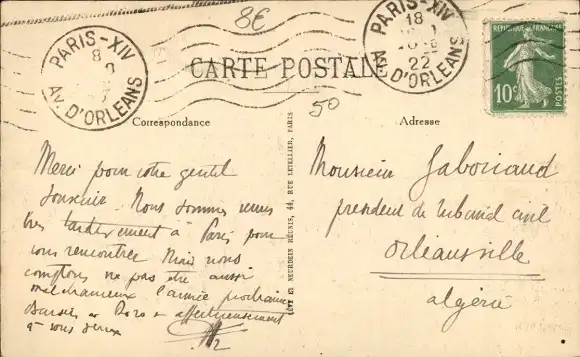 8€
PARIS-XIV
8
Av. D'ORLEANS
PARIS-XIV
18
22
Av. D'ORLEANS
REPUBLIQUE FRANÇAISE
10c
POSTES
CARTE POSTALE
50
Correspondance
Adresse
Merci pour votre gentil
souvenir. Nous sommes venus
très tardivement à Paris pour
vous rencontrer Mais nous
comptons ne pas être aussi
malchanceux l'année prochaine
Baisers affectueusement
à vous deux
LEVY ET NEURDEIN RÉUNIS, 44, RUE LETELLIER, PARIS
Monsieur
président du tribunal civil
Orléansville
Algérie